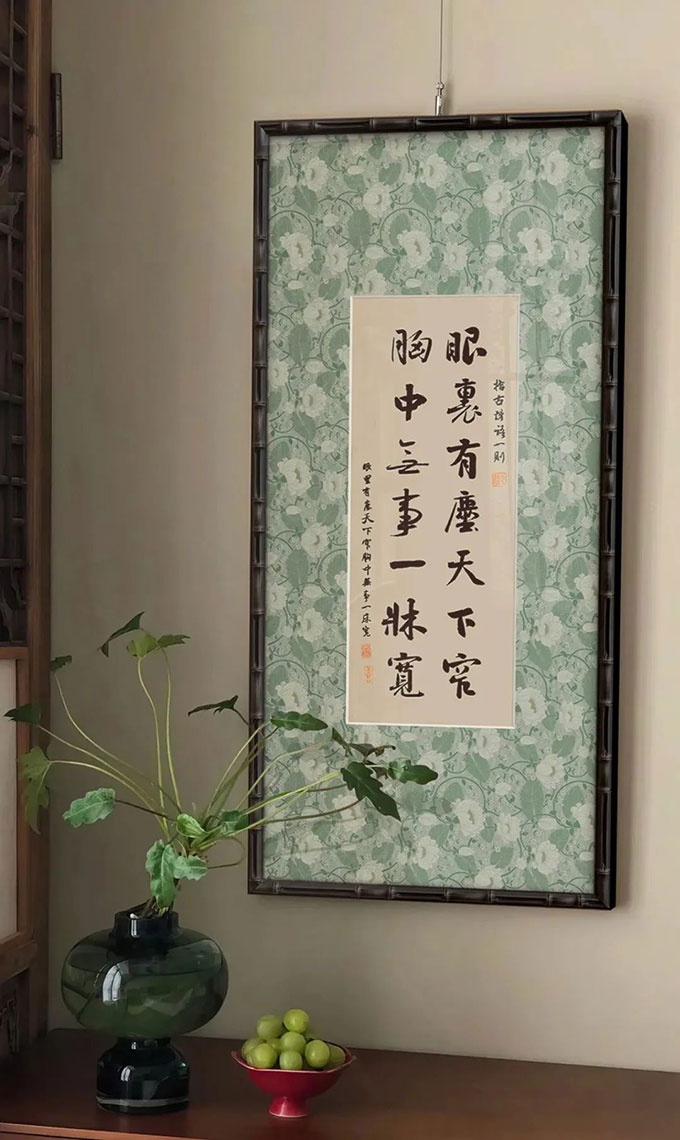 指古禅語一則
眼裏有塵天下窄
胸中無事一牀寬
眼里有塵天下窄胸中無事一床寬